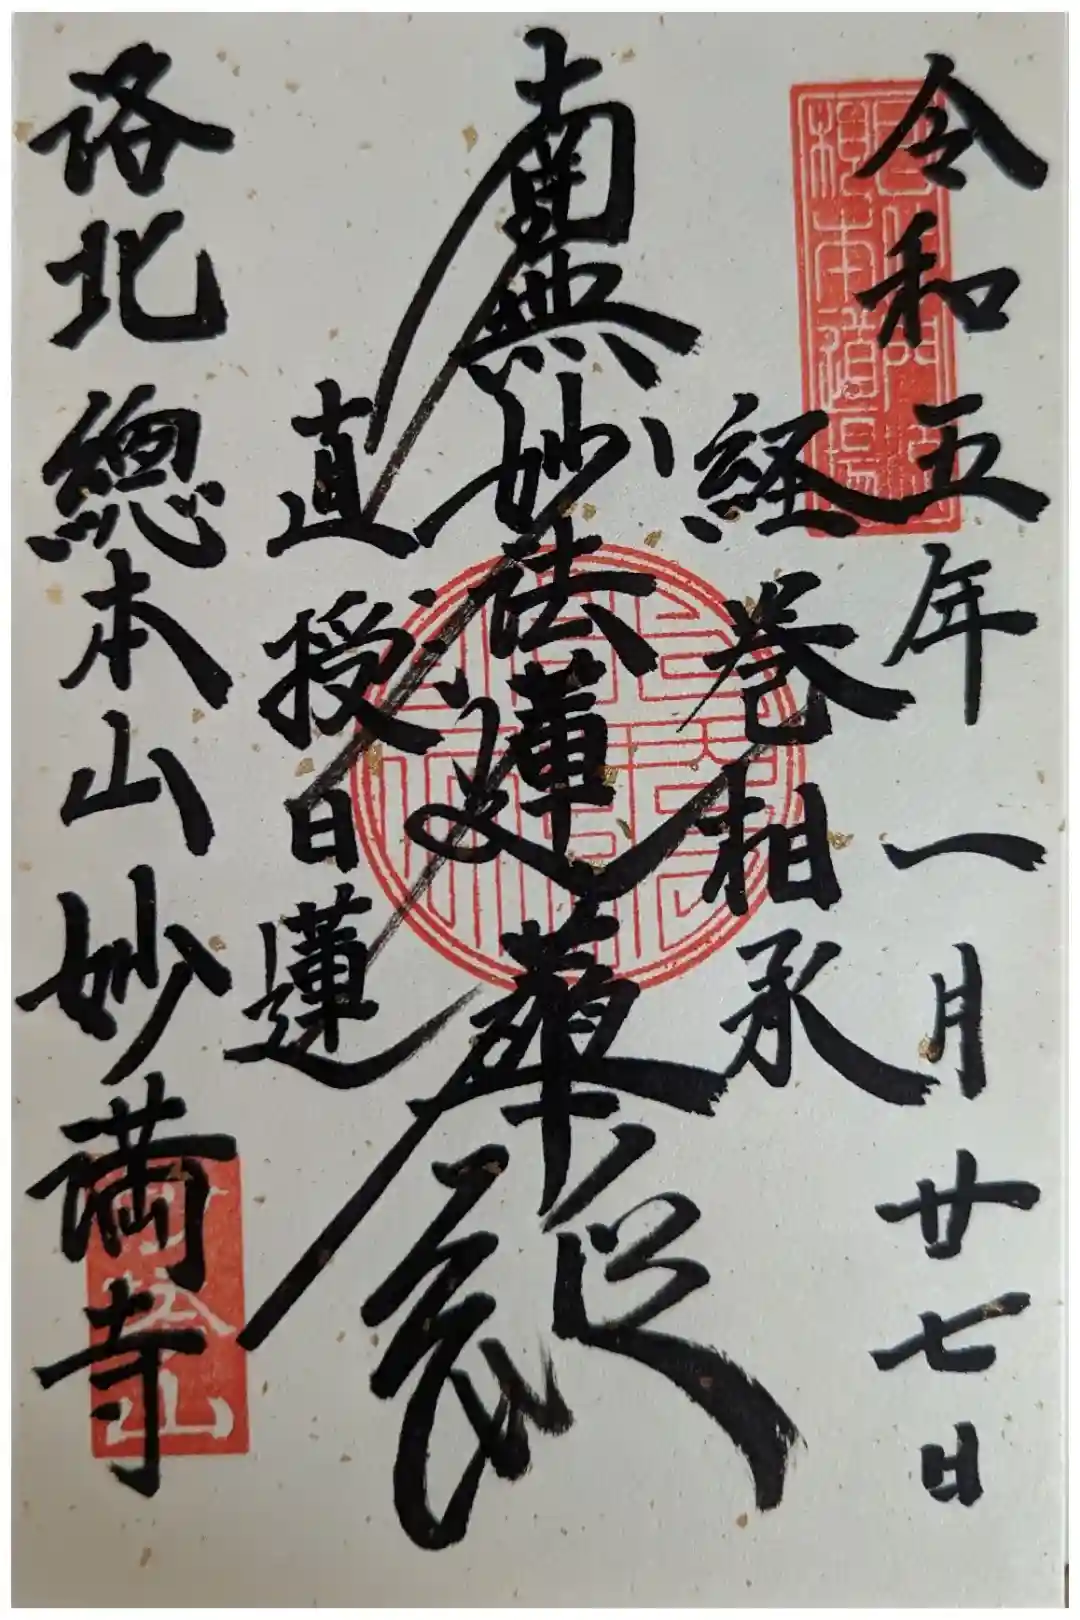 令和五年一月廿七日
経巻相承
南無妙法蓮華経
直授日蓮
洛北 總本山 妙満寺